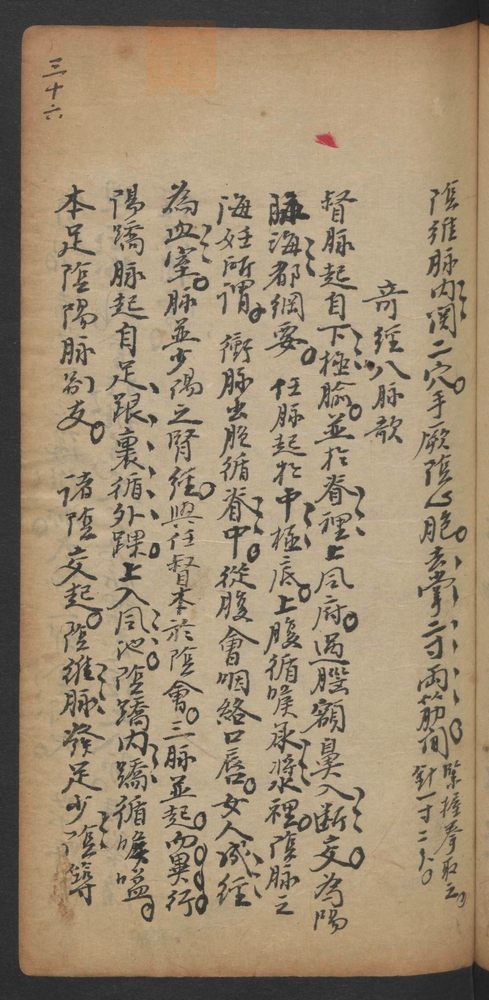 三十六
陰維脉內関二穴手厥陰心胞去掌二寸兩筋間緊握拳取之針一寸二分
奇經八脉歌
督脉起自下極腧並於脊裡上風府過腦額鼻入断交為陽
脉海都綱要任脉起於中極底上腹循喉承漿裡陰脉之
海妊所謂衝脉出胞循脊中從腹會咽絡口唇女人成經
為血室脉並少陽之腎經與任督本於陰會三脉並起而異行
陽蹻脉起自足跟裏循外踝上入風池陰蹻內蹻循喉嗌
本足陰陽脉別支諸陰交起陰維脉發足少陰築